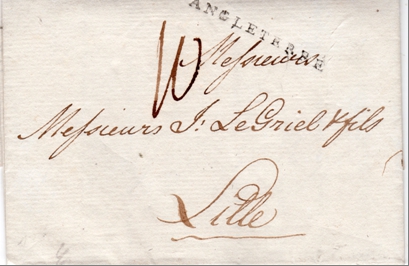 ANGLETERRE
10
Messieurs
Messieurs J: Le Griel & fils
Lille